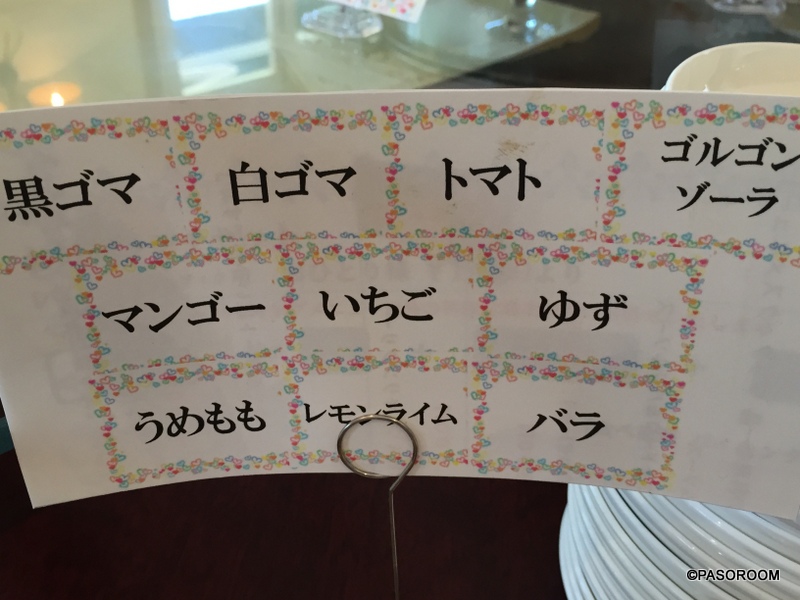 黒ゴマ
白ゴマ
トマト
ゴルゴン
ゾーラ
マンゴー
いちご
ゆず
うめもも
レモンライム
バラ
©PASOROOM